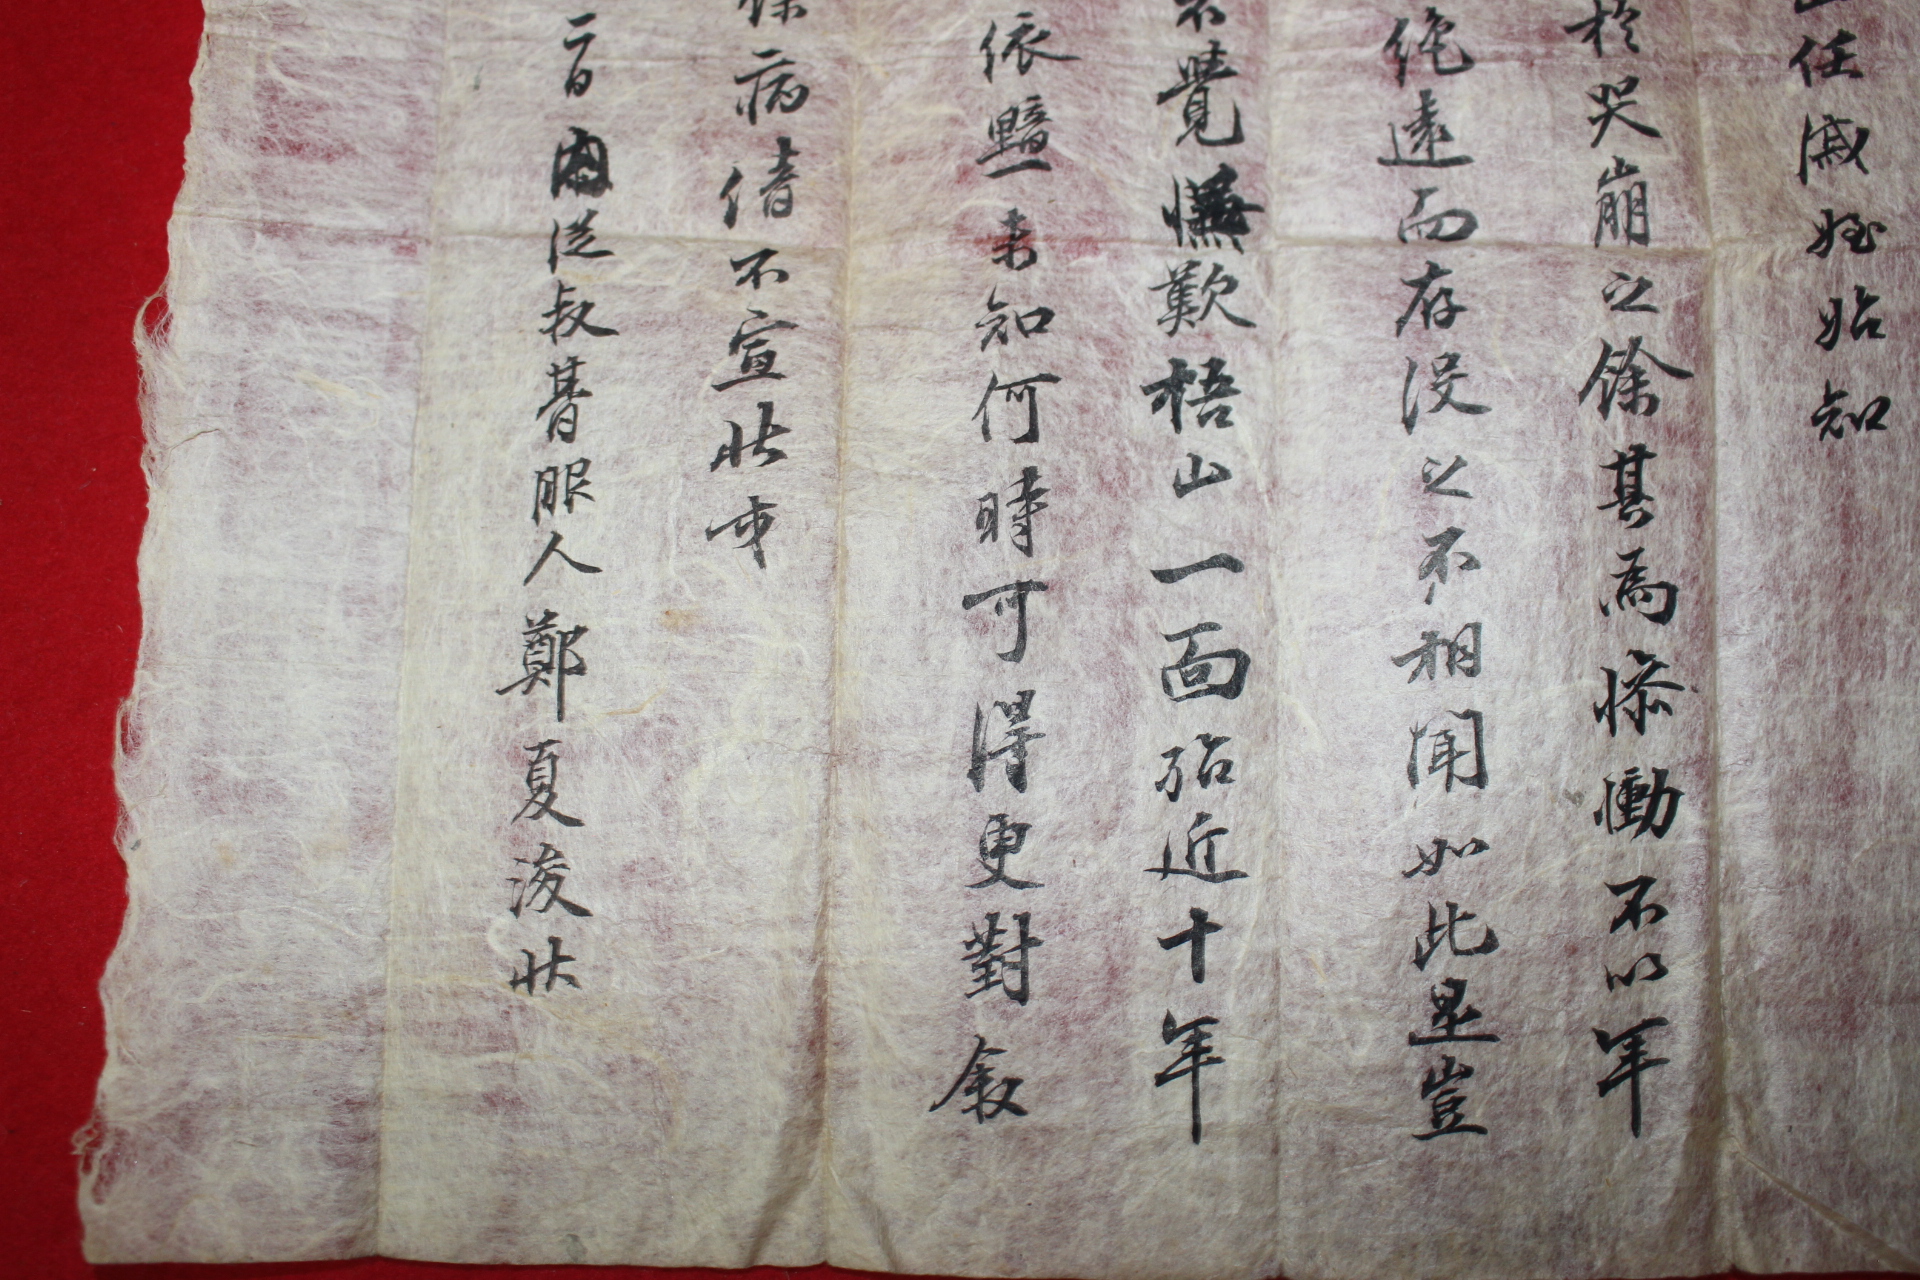 任戚姪始知
於哭崩之餘其爲慘慟不以年
絶遠而存沒之不相聞如此是豈
不覺憮歎梧山一面殆近十年
依黯未知何時可得更對敘
餘病倩不宣狀
二日 內從叔朞服人鄭夏浚狀